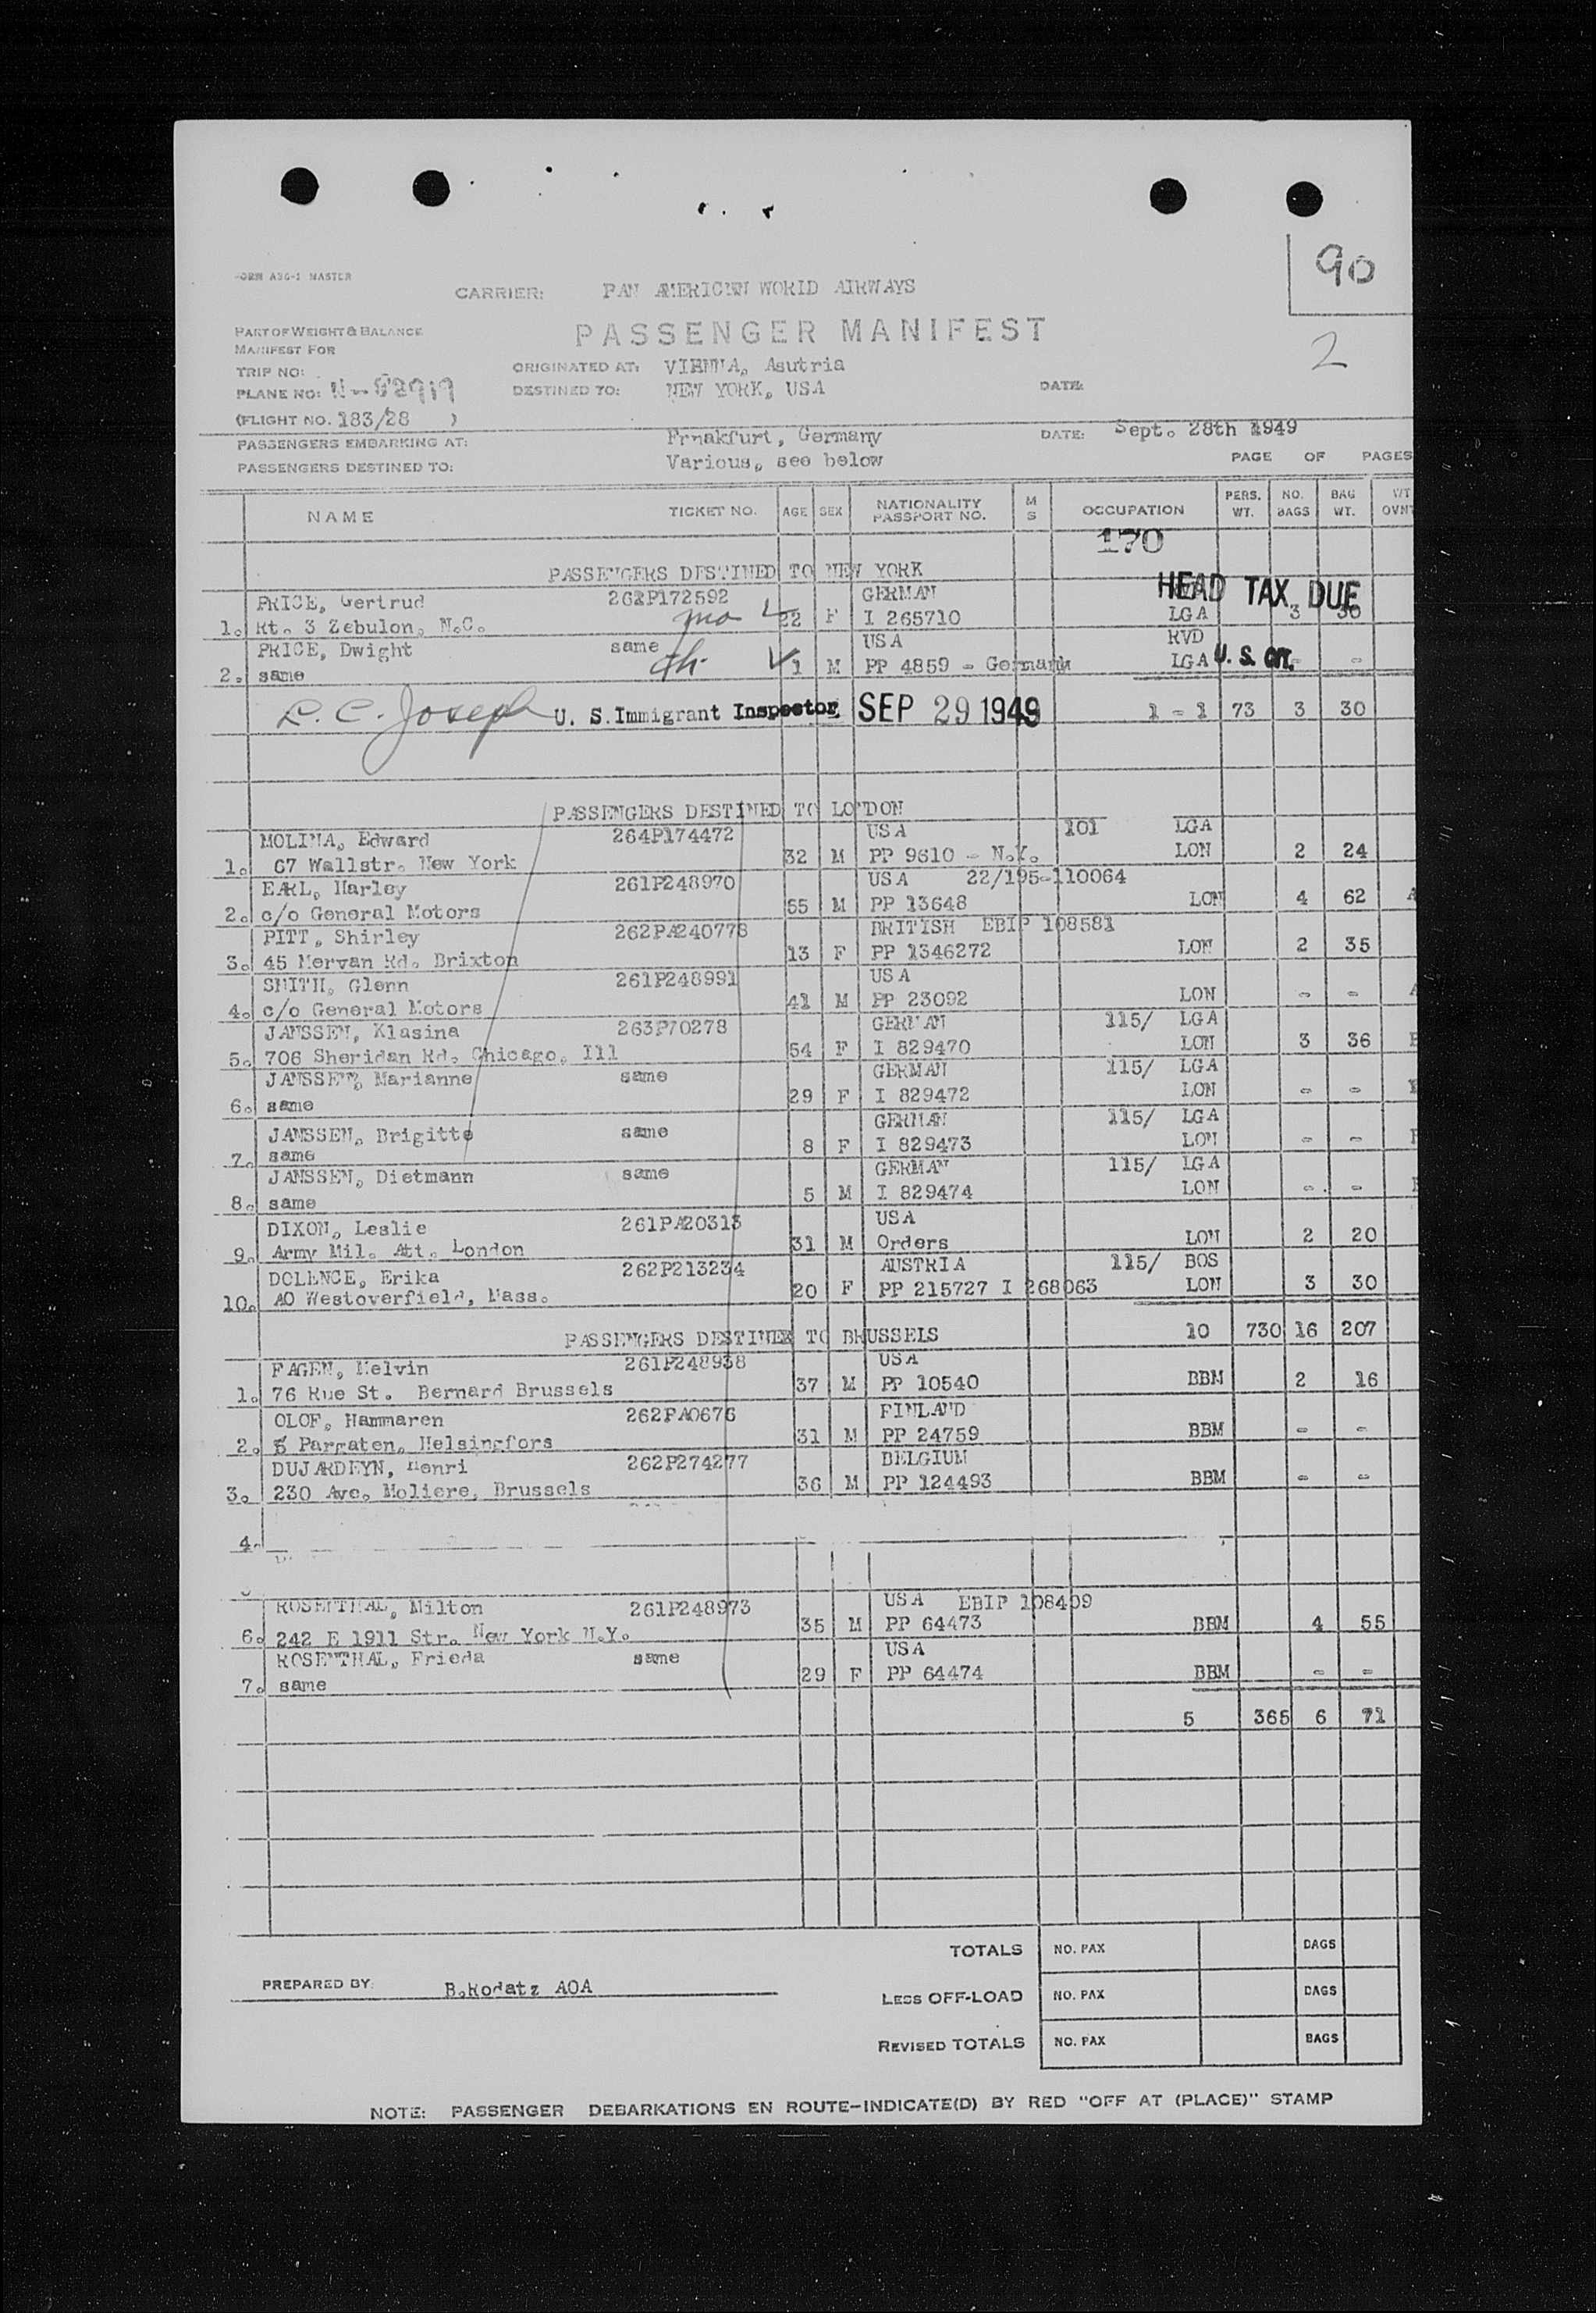 FORM A36-1 MASTER
90
CARRIER: PAN AMERICNW WORID AIRWAYS
PART OF WEIGHT & BALANCE
PASSENGER MANIFEST
MANIFEST FOR
2
TRIP NO: ORIGINATED AT: VIENNA, Asutria
PLANE NO: DESTINED TO: NEW YORK, USA DATE:
(FLIGHT NO. 183/28 )
PASSENGERS EMBARKING AT: Frnakfurt, Germany DATE: Sept. 28th 1949
PASSENGERS DESTINED TO: Various, see below PAGE OF PAGES
NAME TICKET NO. AGE SEX NATIONALITY PASSPORT NO. M S OCCUPATION PERS. WT. NO. BAGS BAG WT. WT OVNT
170
PASSENGERS DESTINED TO NEW YORK
PRICE, Gertrud 262P172592 GERMAN HEAD TAX DUE
1. Rt. 3 Zebulon, N.C. mo 22 F I 265710 LGA 3 30
PRICE, Dwight same USA RVD
2. same ch. 1 M PP 4859 - Germanh LGA U. S. CIT. - -
R. C. Joseph U. S. Immigrant Inspector SEP 29 1949 1 - 1 73 3 30
PASSENGERS DESTINED TO LONDON
MOLINA, Edward 264P174472 USA 101 LGA
1. 67 Wallstr. New York 32 M PP 9610 - N.Y. LON 2 24
EARL, Harley 261P248970 USA 22/195-110064
2. c/o General Motors 55 M PP 13648 LON 4 62 A
PITT, Shirley 262PA240778 BRITISH EBIP 108581
3. 45 Mervan Rd. Brixton 13 F PP 1346272 LON 2 35
SMITH, Glenn 261P248991 USA
4. c/o General Motors 41 M PP 23092 LON - - A
JANSSEN, Klasina 263P70278 GERMAN 115/ LGA
5. 706 Sheridan Rd. Chicago, Ill 54 F I 829470 LON 3 36
JANSSEN, Marianne same GERMAN 115/ LGA
6. same 29 F I 829472 LON - -
JANSSEN, Brigitte same GERMAN 115/ LGA
7. same 8 F I 829473 LON - -
JANSSEN, Dietmann same GERMAN 115/ LGA
8. same 5 M I 829474 LON - -
DIXON, Leslie 261PA20313 USA
9. Army Mil. Att. London 31 M Orders LON 2 20
DOLENCE, Erika 262P213234 AUSTRIA 115/ BOS
10. AO Westoverfield, Mass. 20 F PP 215727 I 268063 LON 3 30
PASSENGERS DESTINED TO BRUSSELS 10 730 16 207
FAGEN, Melvin 261P248938 USA
1. 76 Rue St. Bernard Brussels 37 M PP 10540 BBM 2 16
OLOF, Hammaren 262PA0676 FINLAND
2. Pargaten, Helsingfors 31 M PP 24759 BBM - -
DUJARDEYN, Henri 262P274277 BELGIUM
3. 230 Ave. Moliere, Brussels 36 M PP 124493 BBM - -
4.
ROSENTHAL, Milton 261P248973 USA EBIP 108409
6. 242 E 1911 Str. New York N.Y. 35 M PP 64473 BBM 4 55
ROSENTHAL, Frieda same USA
7. same 29 F PP 64474 BBM - -
5 365 6 71
TOTALS NO. PAX BAGS
PREPARED BY: B.Rodatz AOA
LESS OFF-LOAD NO. PAX BAGS
REVISED TOTALS NO. PAX BAGS
NOTE: PASSENGER DEBARKATIONS EN ROUTE-INDICATE(D) BY RED "OFF AT (PLACE)" STAMP